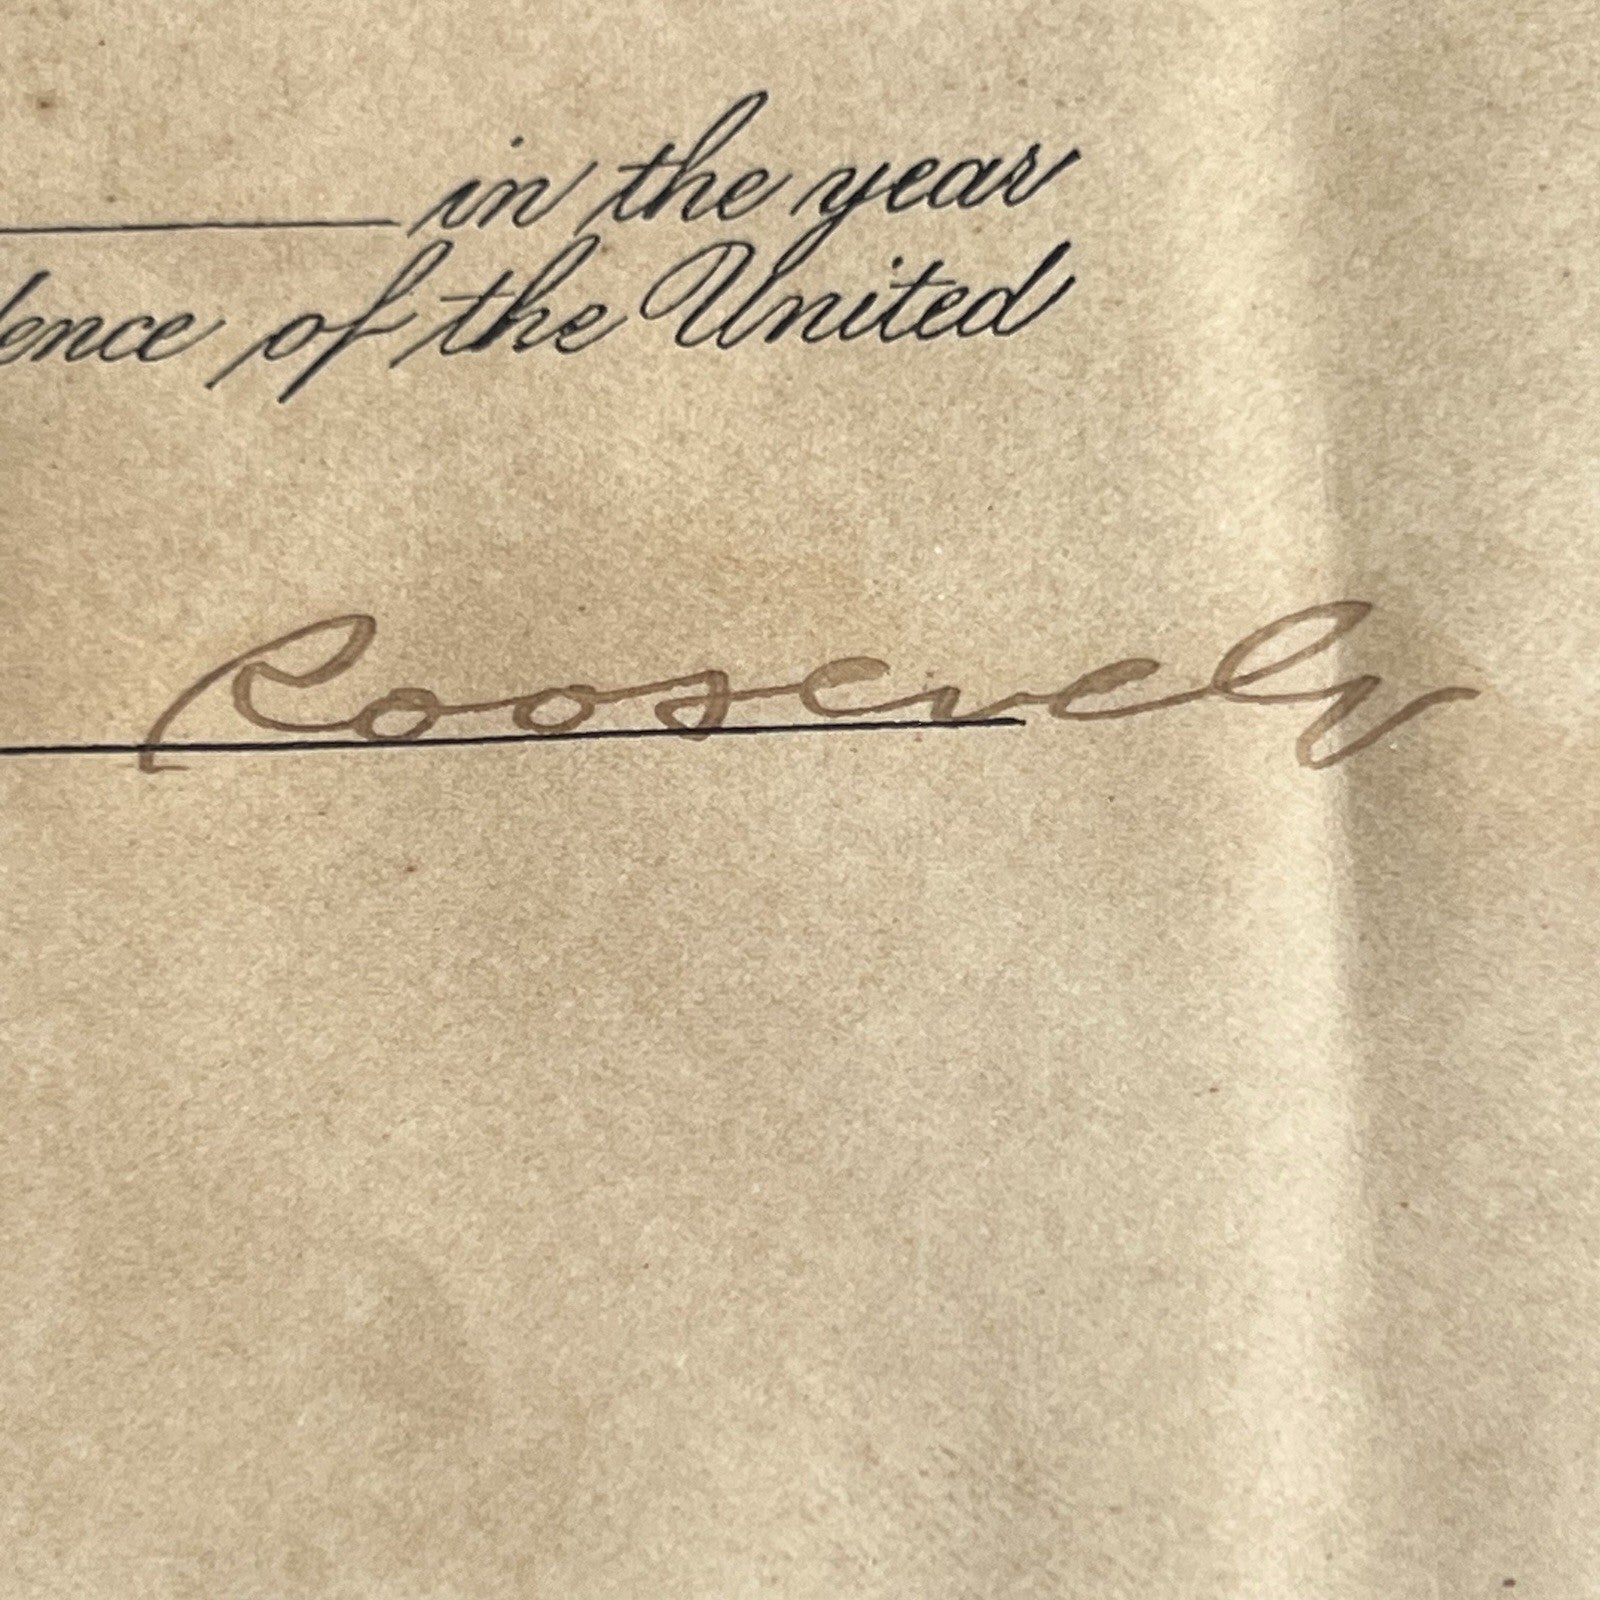 in the year
dence of the United
Roosevelt